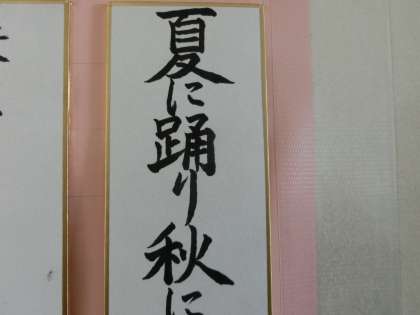 夏に踊り秋に